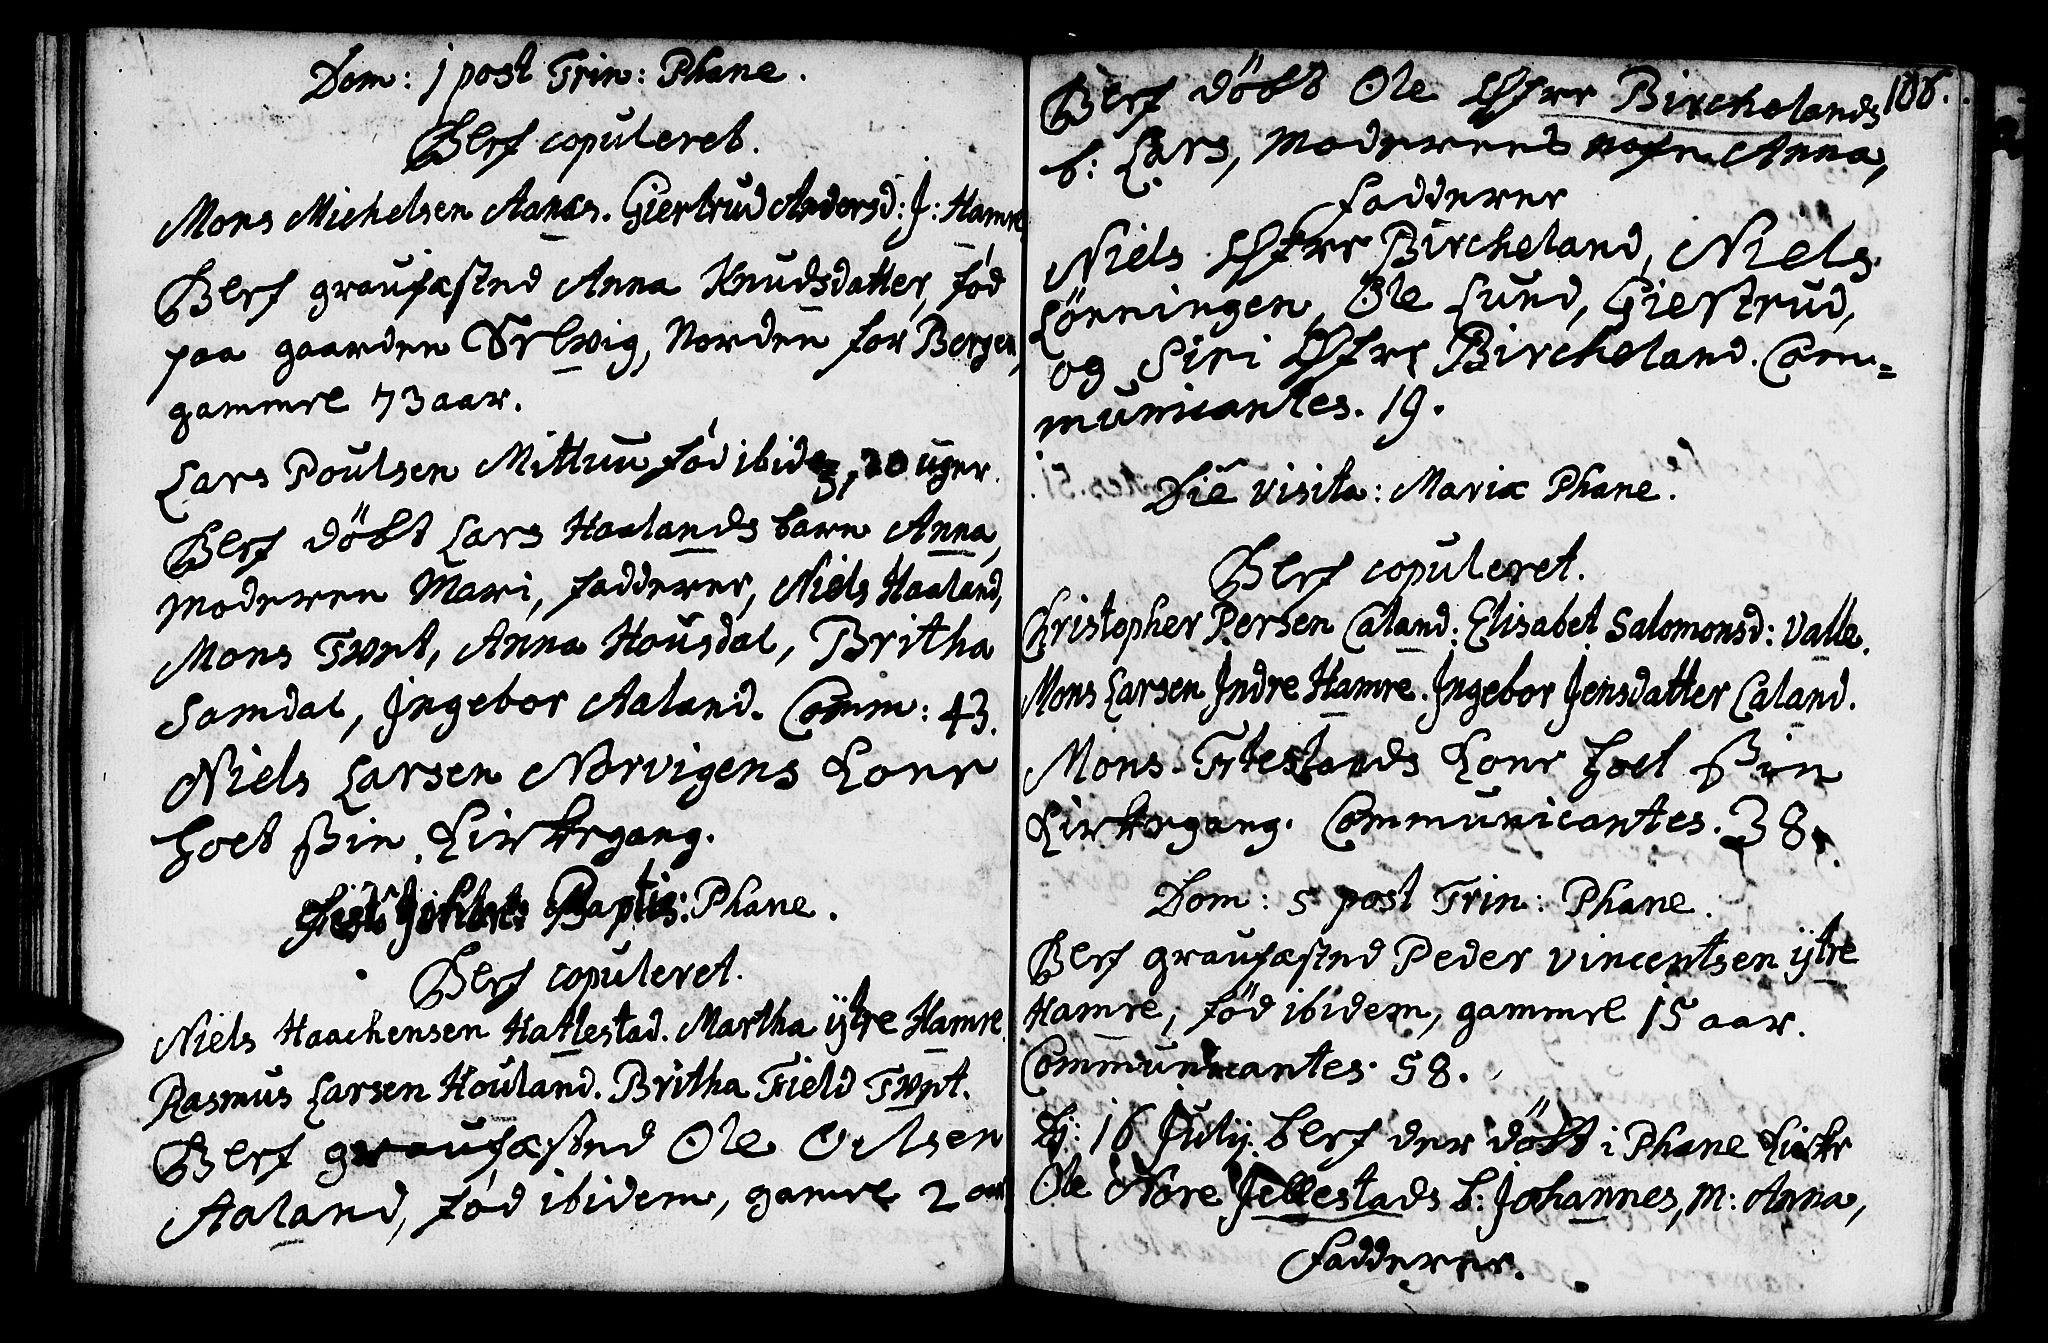 Dom: 1 post Trin: Phane.
Blef copuleret.
Mons Michelsen Aanæs. Giertrud Andersd: J: Hamre
Blef graufæsted Anna Knudsdatter, fød
paa gaarden Selwig, Norden for Bergen,
gammel 73 aar.
Lars Poulsen Mittun fød ibid 20 uger.
Blef döbt Lars Haalands barn Anna,
moderen Mari, fadderer, Niels Haaland,
Mons Twet, Anna Housdal, Britha
Samdal, Jngebor Aaland. Comm: 43.
Niels Larsen Norvigens Kone
holt sin Kirkegang.
Baptis: Phane.
Blef copuleret.
Niels Haachensen Hatlestad. Martha ÿtre Hamre.
Rasmus Larsen Houland. Britha Field Twet.
Blef graufæsted Ole Olsen
Aaland, fød ibidem, gamel 2 aar
Blef döbt Ole Birchelands 106.
b: Lars, Moderens nafn Anna,
fadderer
Niels Bircheland, Niels
Lönningen, Ole Lund, Giertrud,
og Siri Bircheland. Com=
municantes. 19.
Die visita: Mariæ Phane.
Blef copuleret.
Christopher Persen Caland. Elisabet Salomonsd: Valle.
Mons Larsen Jndre Hamre. Jngebor Jensdatter Caland.
Mons Titlestands Kone holt sin
Kirkegang. Communicantes. 38.
Dom: 5 post Trin: Phane.
Blef graufæsted Peder Vincentsen ÿtre
Hamre, föd ibidem, gammel 15 aar.
Communicantes. 58.
D: 16 Julij. blef der döbt i Phane Kirke
Ole Nore Jellestads b: Johannes, M: Anna,
Fadderer.